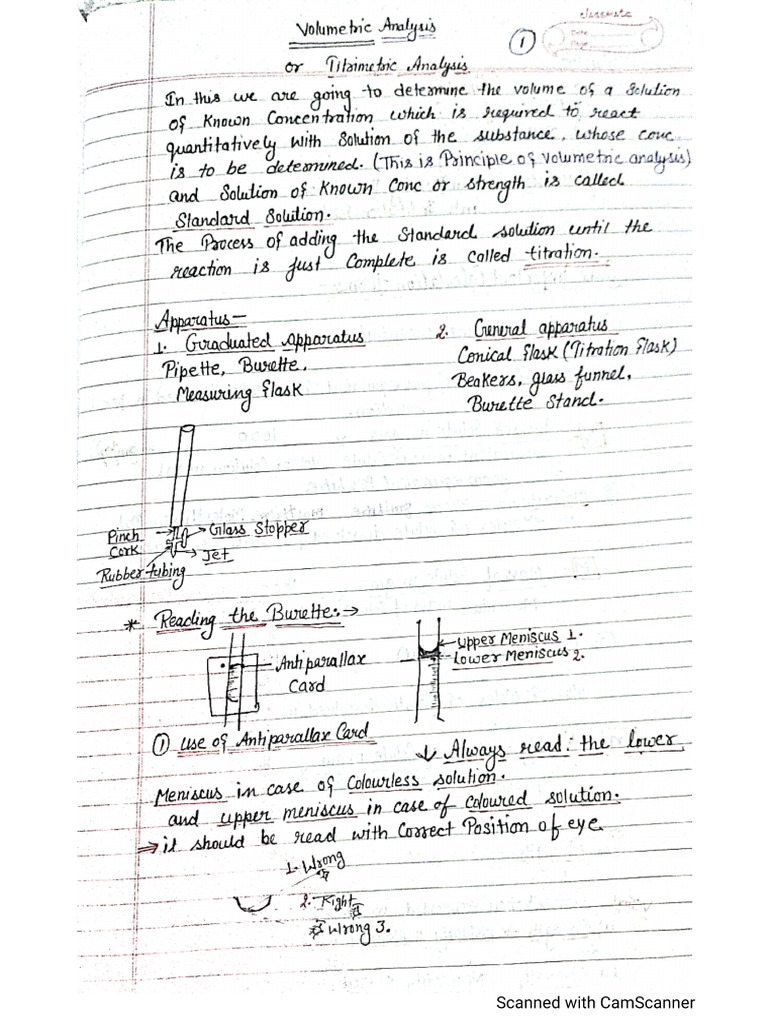 classmate
Date
Page
1
Volumetric Analysis
or Titrimetric Analysis
In this we are going to determine the volume of a Solution
of Known Concentration which is required to react
quantitatively with Solution of the substance, whose conc
is to be determined. (This is Principle of volumetric analysis)
and Solution of Known Conc or strength is called
Standard Solution.
The Process of adding the Standard solution until the
reaction is Just Complete is called titration.
Apparatus—
1. Graduated Apparatus
Pipette, Burette,
Measuring flask
2. General apparatus
Conical flask (Titration flask)
Beakers, glass funnel,
Burette Stand.
Pinch
Cork
Glass Stopper
Jet
Rubber tubing
* Reading the Burette:→
Antiparallax
Card
Upper Meniscus 1.
Lower Meniscus 2.
① Use of Antiparallax Card
↓ Always read the lower
Meniscus in case of Colourless solution.
and upper meniscus in case of coloured solution.
⇒ it should be read with Correct Position of eye
1. Wrong
2. Right
Wrong 3.
Scanned with CamScanner